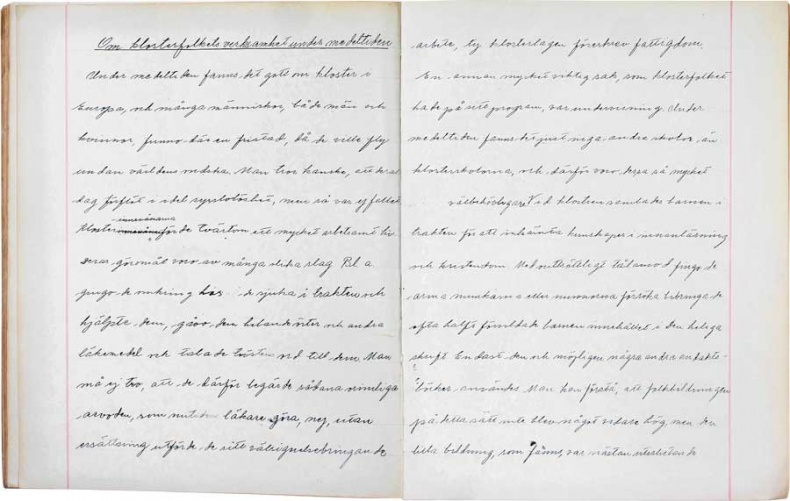 Om klosterfolkets verksamhet under medeltiden
Under medeltiden fanns det gott om kloster i
Europa, och många människor, både män och
kvinnor, funno där en fristad, då de ville fly
undan världens ondska. Man tror kanske, att deras
dag förflöt i idel sysslolöshet, men så var ej fallet
Kloster innevånarna förde tvärtom ett mycket arbetsamt liv
deras göromål voro av många olika slag. Bl. a
gingo de omkring hos de sjuka i trakten och
hjälpte dem, gåvo dem helande örter och andra
läkemedel och talade tröstens ord till dem. Man
må ej tro, att de därför begärde sådana orimliga
arvoden, som nutiden läkare göra, nej, utan
ersättning utförde de sitt välsignelsebringande
arbete, ty klosterlagen föreskrev fattigdom.
En annan mycket viktig sak, som klosterfolket
hade på sitt program, var undervisning. Under
medeltiden fanns det just inga andra skolor, än
klosterskolorna, och därför voro dessa så mycket
välbehövligare. Vid klostren samlades barnen i
trakten för att inhämta kunskaper i innanläsning
och kristendom. Med outtröttligt tålamod fingo de
arma munkarna eller nunnorna försöka bibringa de
ofta halft förvildade barnen innehållet i den heliga
skrift. Endast den och möjligen några andra andakts-
böcker användes. Man kan förstå, att folkbildningen
på detta sätt inte blev något vidare hög, men den
lilla bildning, som fanns, var nästan uteslutande